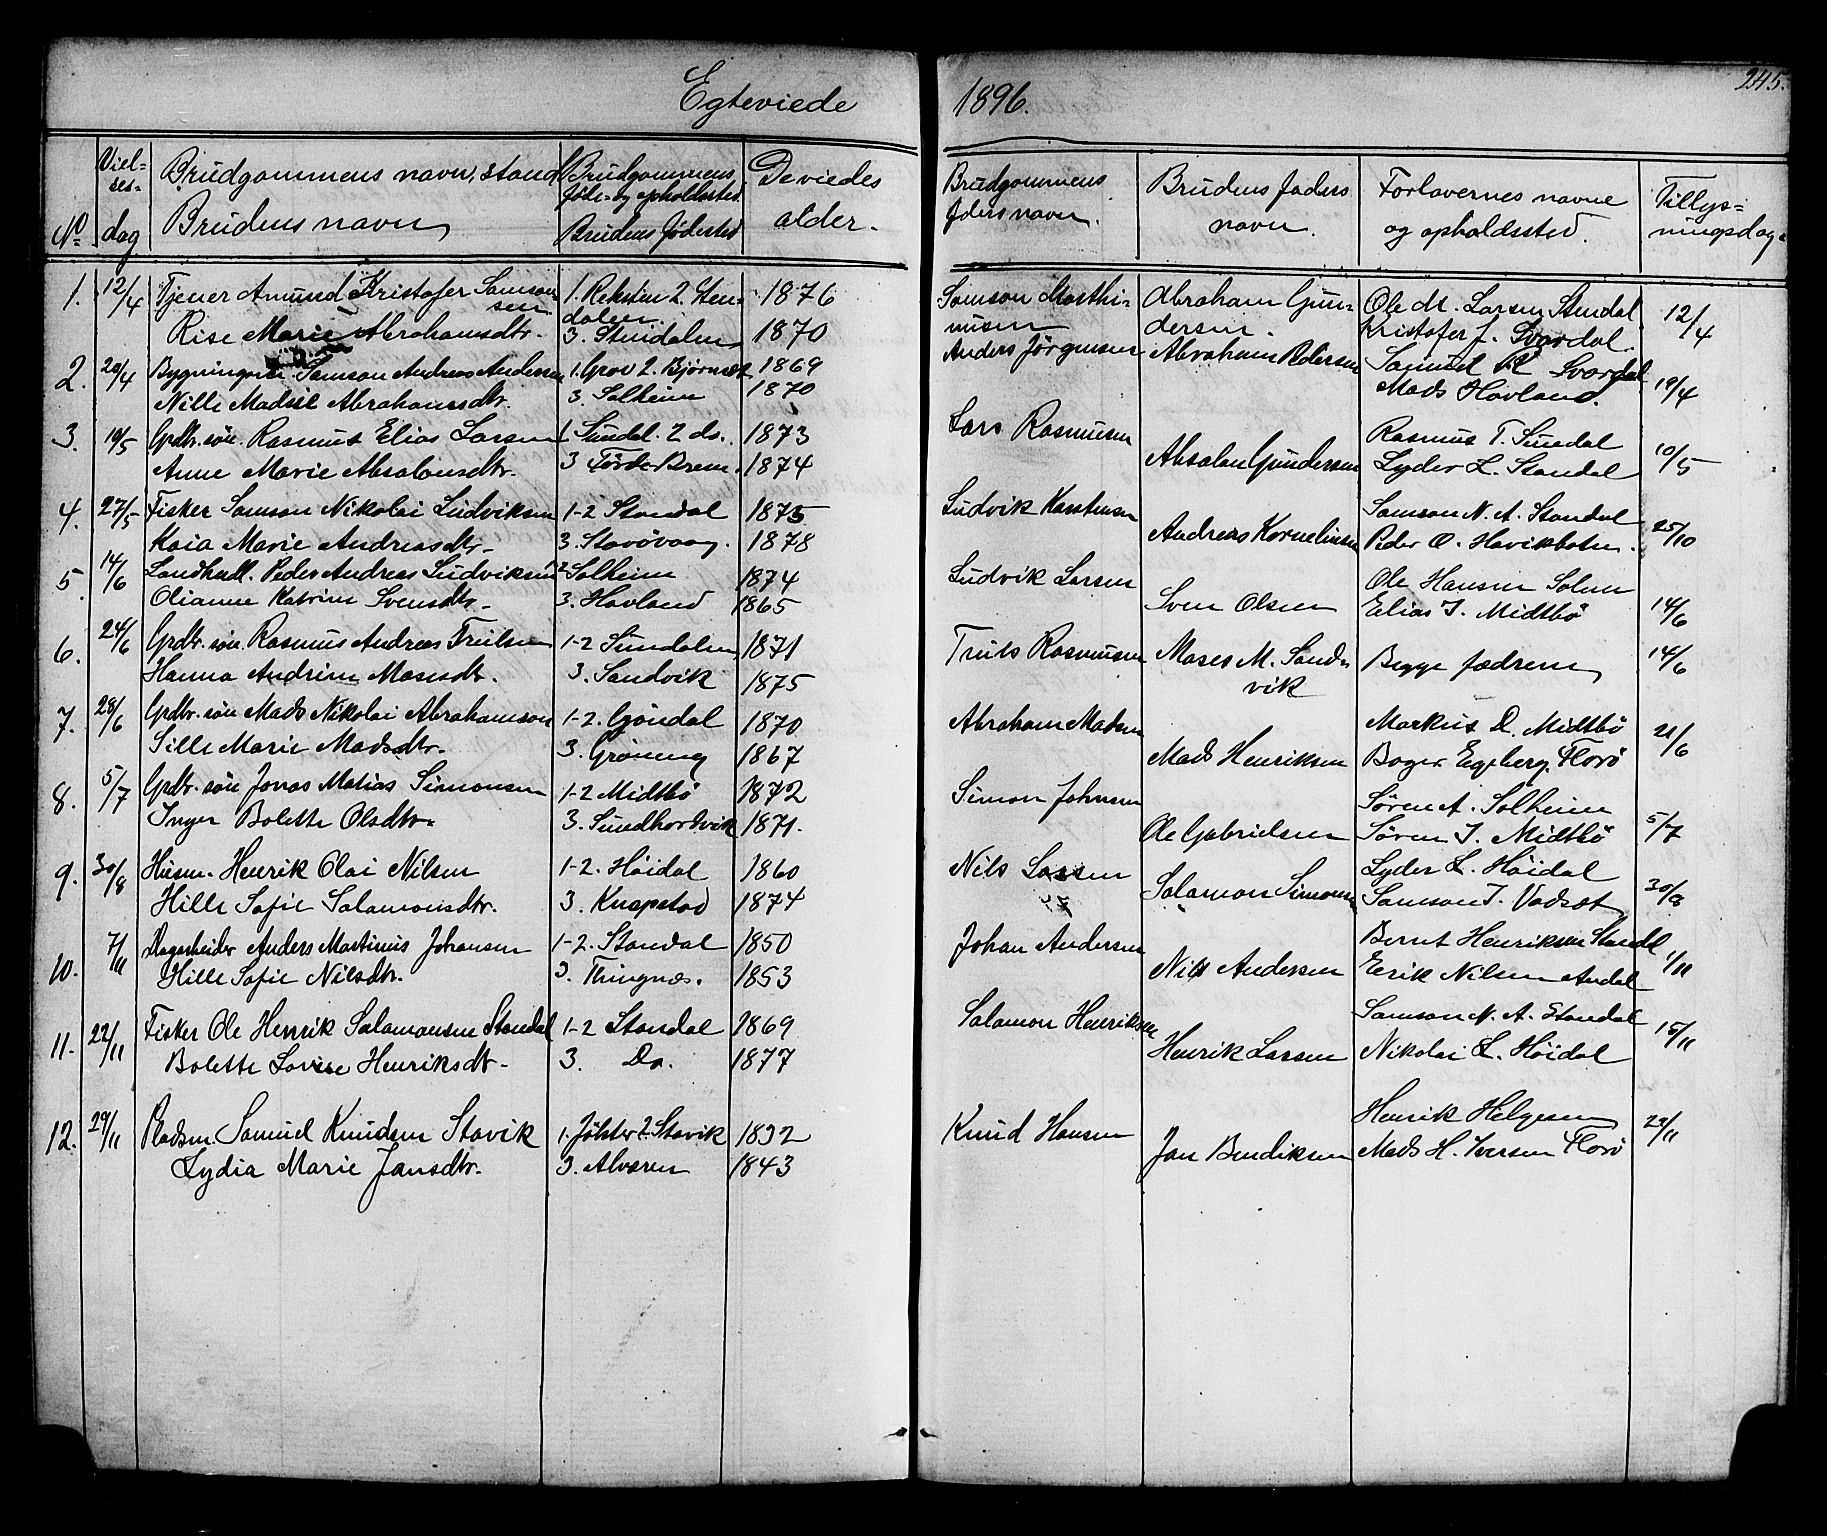 Egteviede 1896.
245.
No
Viel-
ses-
dag
Brudgommens navn, stand
Brudens navn
Brudgommens
føde- og opholdssted
Brudens fødested
De viedes
alder.
Brudgommens
faders navn.
Brudens faders
navn.
Forlovernes navne
og opholdssted.
Tillys-
ningsdag.
1. 12/4 Tjener Amund Kristofer Samson- 1. 2. Sten- 1876 Samson Marthi- Abraham Gun- Ole M. Larsen Stendal 12/4
sen dalen nusen dersen. Kristofer J. Svardal.
Rise Marie Abrahamsdtr. 3. Stendalen 1870
2. 26/4 Samson Andreas Andersen 1. Grov 2. Bjørnset 1869 Anders Jörgensen Abraham Pedersen Samuel Svardal 19/4
Nille Madsil Abrahamsdtr. 3. Solheim 1870 Mads Hovland.
3. 19/5 Grdbr. søn. Rasmus Elias Larsen 1 Sundal. 2 do. 1873 Lars Rasmusen Absalon Gundersen Rasmus T. Sundal 10/5
Anne Marie Absalonsdtr. 3 Förde Brem. 1874 Lyder L. Standal
4. 27/5 Fisker Samson Nikolai Ludviksen 1-2 Standal 1875 Ludvik Karstensen Andreas Korneliusen Samson N. A. Standal 25/10
Kaia Marie Andreasdtr. 3. Stavøvaag. 1878 Peder O. Havikbotn.
5. 14/6 Landhdl. Peder Andreas Ludviksen 1-2 Solheim 1874 Ludvik Larsen Sven Olsen Ole Hansen Solem 14/6
Olianne Katrine Svensdtr. 3. Hovland 1865 Elias I. Midtbö
6. 24/6 Grdbr. søn. Rasmus Andreas Trulsen 1-2 Sundalen 1871 Truls Rasmusen Moses M. Sand- Begge fædrene 14/6
vik
Hanna Andrine Mosesdtr. 3. Sandvik 1875
7. 28/6 Grdbr. søn Mads Nikolai Abrahamson 1-2. Gjöndal 1870 Abraham Madsen Mads Henriksen Markus D. Midtbö 21/6
Sille Marie Madsdtr. 3. Gröning 1867 Boger Egeberg, Florö
8. 5/7 Grdbr. søn Jonas Matias Simonsen 1-2 Midtbö 1872 Simon Johnsen Ole Gabrielsen Sören A. Solheim 5/7
Inger Bolette Olsdtr. 3. Sundhordvik 1871. Sören I. Midtbö
9. 30/8 Husm. Henrik Olai Nilsen 1-2. Höidal 1860 Nils Lassen Salamon Simonsen Lyder L. Höidal 30/8
Hille Sofie Salamonsdtr. 3. Knapstad 1874 Samson J. Vadset
10. 7/11 Dagarbeider Anders Martinus Johansen 1-2. Standal 1850 Johan Andersen Nils Andersen Bernt Henriksen Standal 1/11
Hille Sofie Nilsdtr. 3. Thingnæs. 1853 Eerik Nilsen Ardal
11. 22/11 Fisker Ole Henrik Salamonsen Standal 1-2 Standal 1869 Salamon Henriksen Henrik Larsen Samson N. A. Standal 15/11
Bolette Lovise Henriksdtr. 3. Do. 1877 Nikolai L. Höidal
12. 29/11 Pladsm. Samuel Knudsen Stavik 1. Jölster 2. Stavik 1832 Knud Hansen Jan Bendiksen Henrik Helgesen 29/11
Lydia Marie Jansdtr. 3. Alværen 1843 Mads H. Iversen Florö